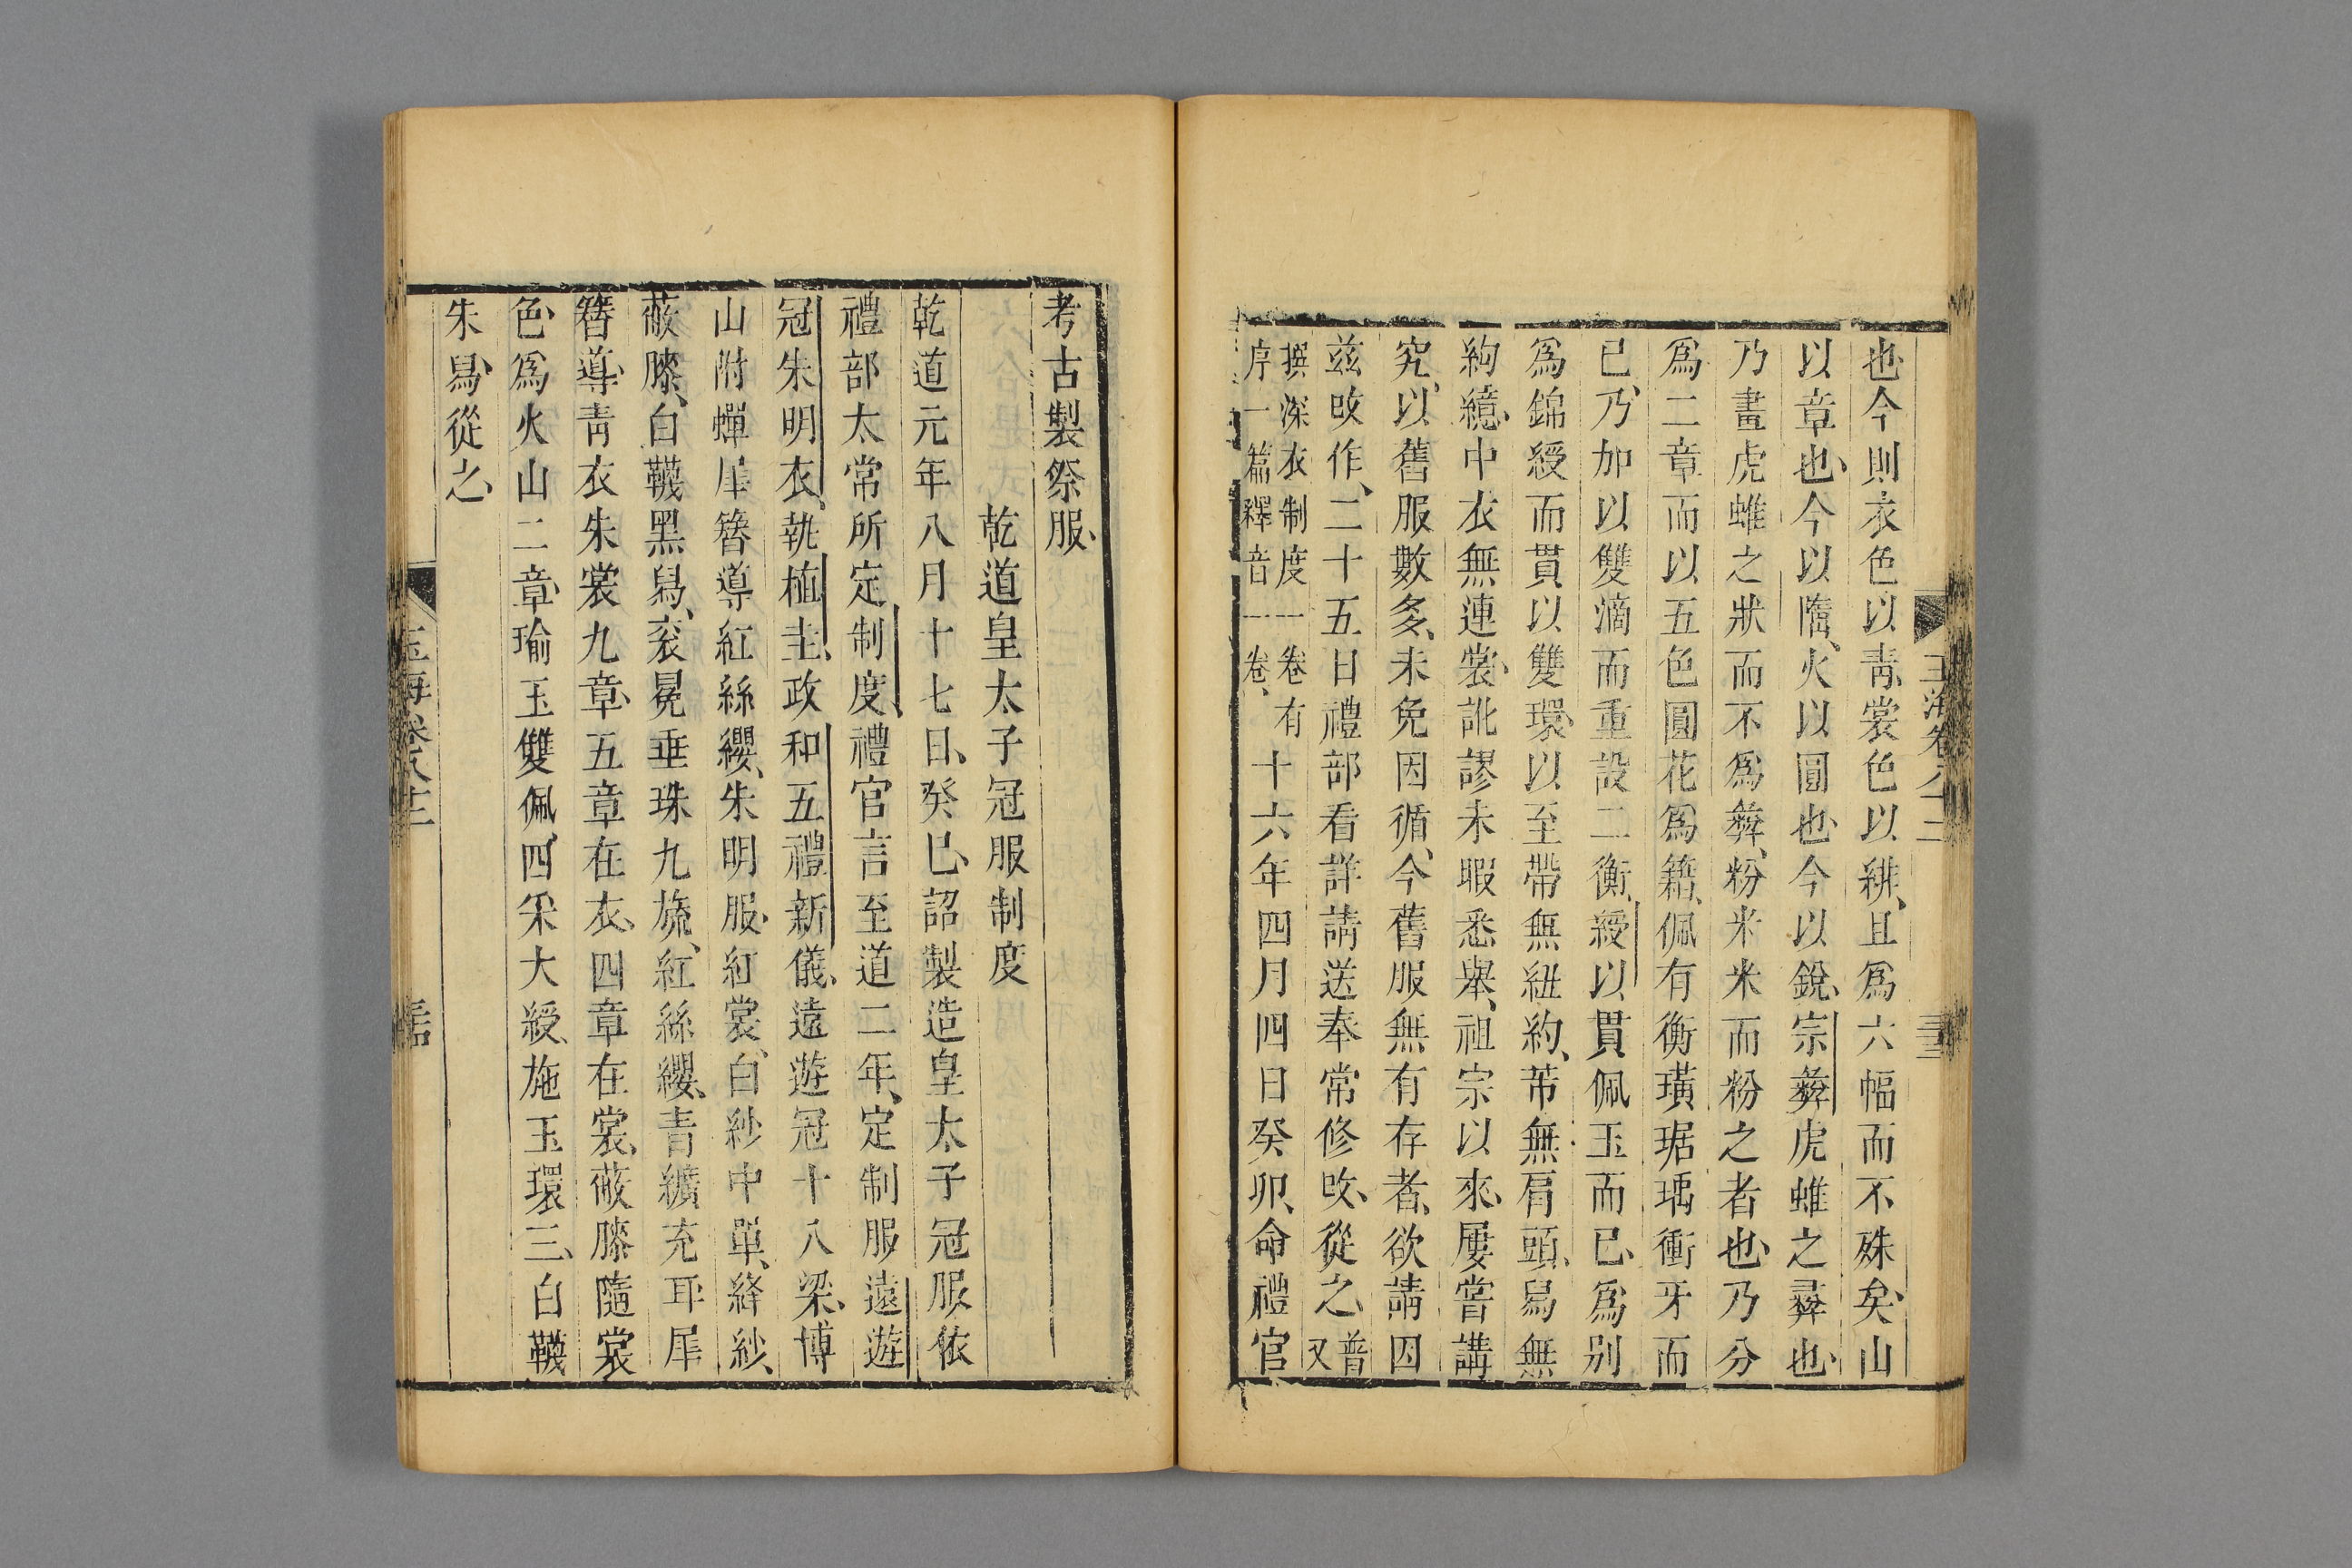 也今則衣色以青裳色以緋且爲六幅而不殊矣山
以章也今以隋火以圓也今以銳宗彝虎蜼之彝也
乃畫虎蜼之狀而不爲彝粉米米而粉之者也乃分
爲二章而以五色圓花爲籍佩有衡璜琚瑀衝牙而
已乃加以雙滴而重設二衡綬以貫佩玉而已爲別
爲錦綬而貫以雙環以至帶無紐約芾無肩頭舄無
絇繶中衣無連裳訛謬未暇悉舉祖宗以來屢嘗講
究以舊服數多未免因循今舊服無有存者欲請因
茲改作二十五日禮部看詳請送奉常修改從之又普
撰深衣制度一卷有
序一篇釋音一卷
十六年四月四日癸卯命禮官
玉海卷八二
考古製祭服
乾道皇太子冠服制度
乾道元年八月十七日癸巳詔製造皇太子冠服依
禮部太常所定制度禮官言至道二年定制服遠遊
冠朱明衣執桓圭政和五禮新儀遠遊冠十八梁博
山附蟬犀簪導紅絲纓朱明服紅裳白紗中單絳紗
蔽膝白韈黑舄衮冕垂珠九旒紅絲纓青纊充耳犀
簪導青衣朱裳九章五章在衣四章在裳蔽膝隨裳
色爲火山二章瑜玉雙佩四采大綬施玉環三白韈
朱舄從之
玉海卷八十二